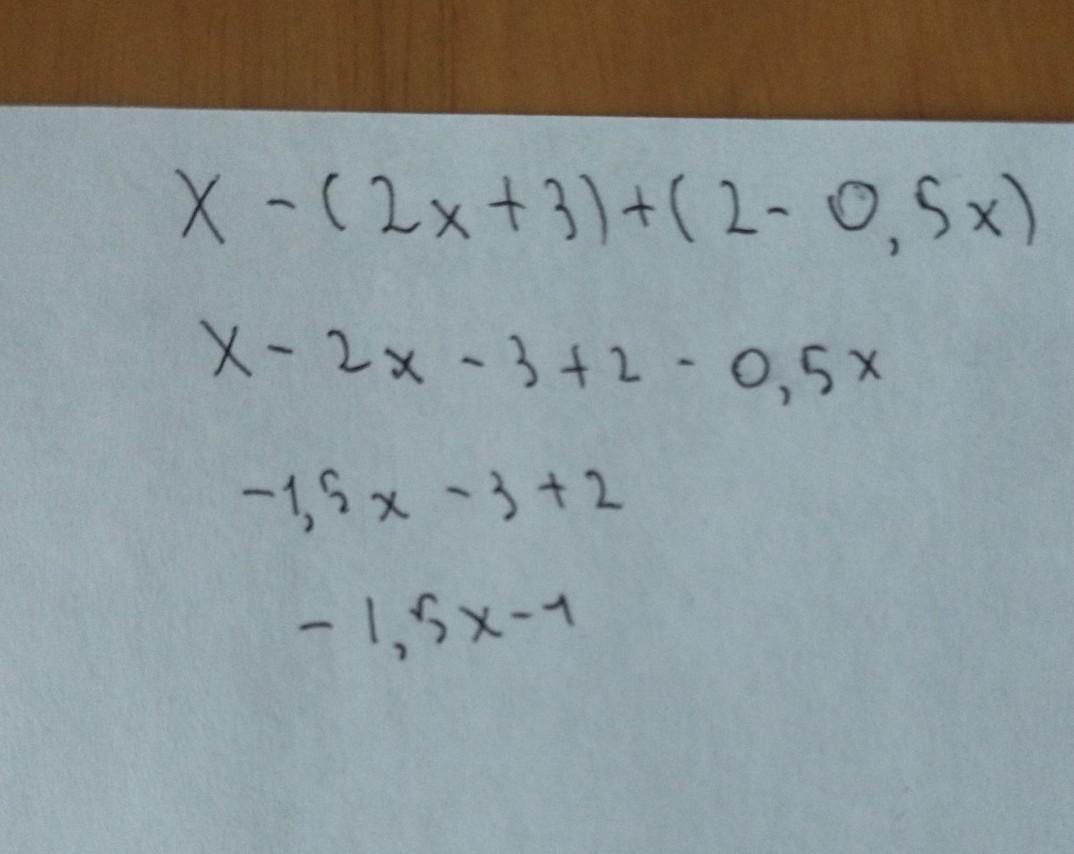 x - (2x+3)+(2- 0,5x)
x - 2x - 3+2 - 0,5x
-1,5x - 3+2
- 1,5x-1